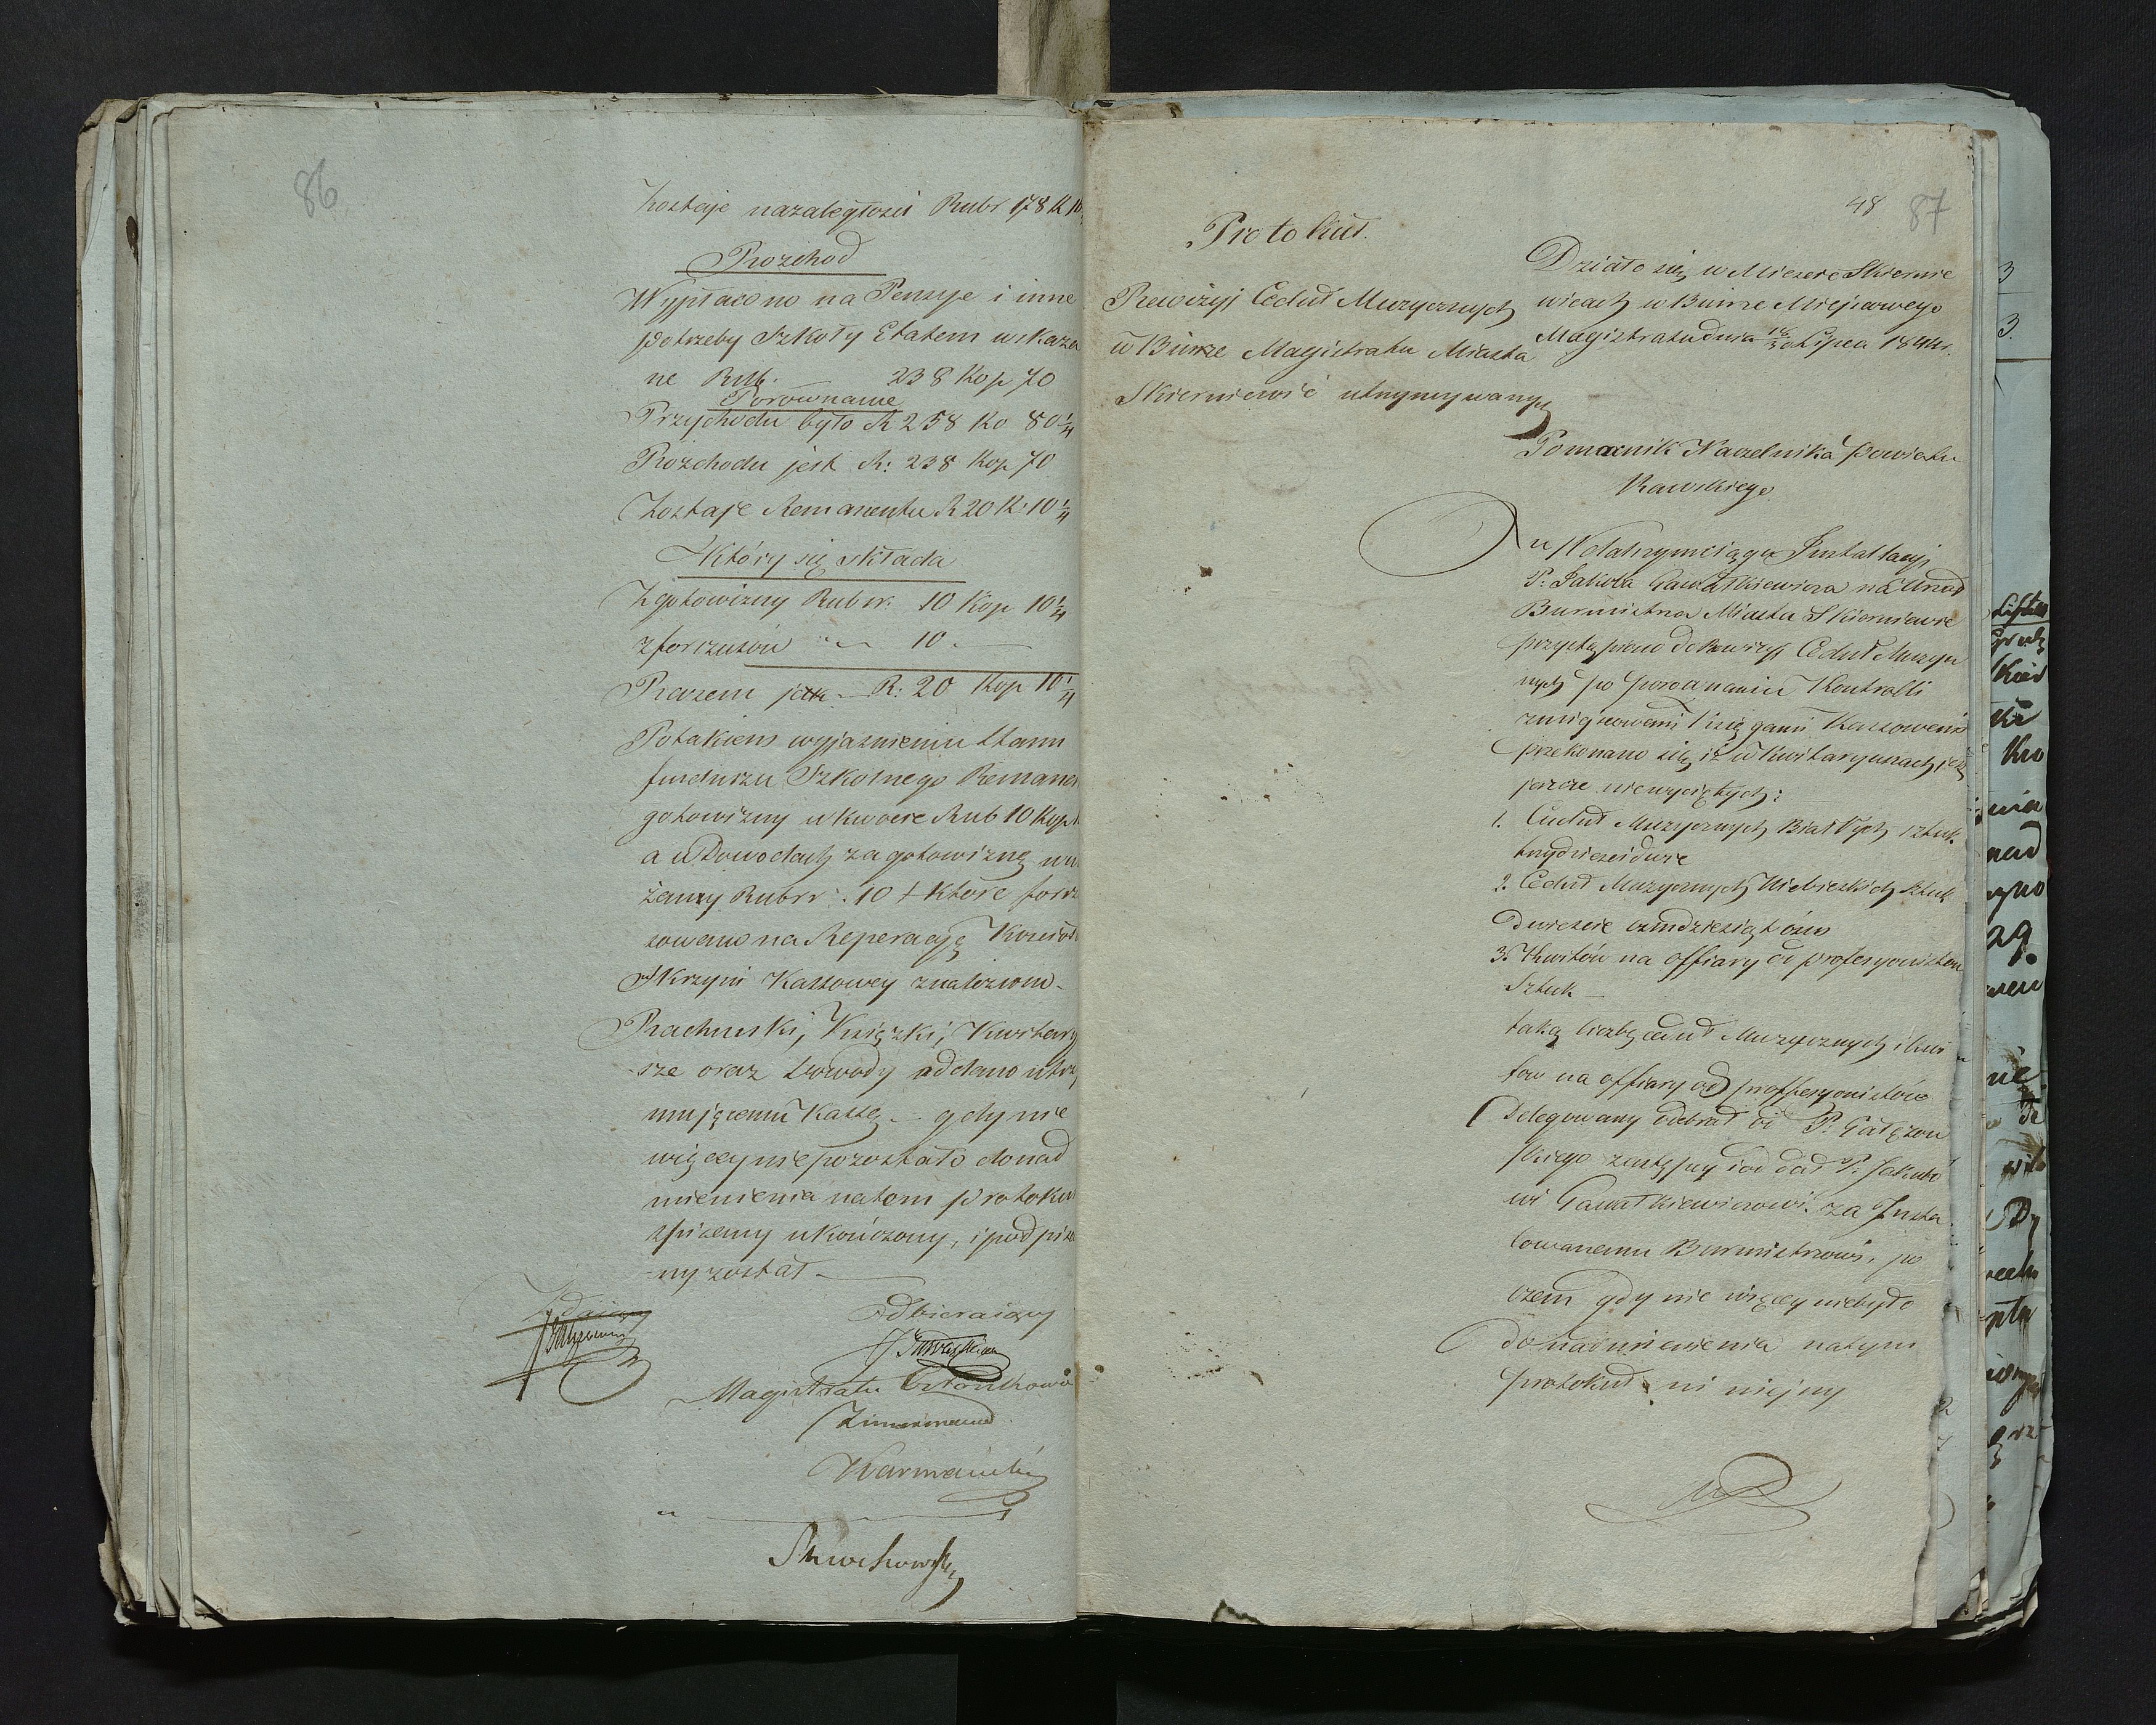 86
Zostaje nazaległości Rubr 178 K 10
Rozchod
Wypłacono na Pensye i inne
potrzeby Szkoły Etatem wskaza
ne Rub. 238 Kop 70
Porownanie
Przychodu było R 258 Ko 80 1/4
Rozchodu jest R: 238 Kop 70
Zostaje Remanentu R 20 K: 10 1/4
Który się składa
Z gotowizny Rubsr. 10 Kop 10 1/4
z forszusów 10
Razem jest R: 20 Kop 10 1/4
Potakiem wyjaśnieniu stanu
funduszu Szkolnego Remanen
gotowizny w kwocie Rub 10 Kop
a w Dowodach za gotowiznę uwa
żany Rubsr: 10 które forsz
sowano na Reperacyę Kościoł
w Skrzyni Kassowey znaleziono
Rachunki, Książki, Kwitary
sze oraz Dowody oddano utrzy
mującemu Kassę gdy nie
więcey nie pozostało donad
mienienia natem protokuł
spisany ukończony, i podpisa
ny został
Zdaiący
Odbieraiący
Magistratu Członkowie
Zimmermann
48 87
Protokuł
Rewizyi Ceduł Muzycznych
w Biurze Magistratu Miasta
Skierniewic utrzymywanych
Działo się w Miescie Skiernie
wicach w Biurze Miejscowego
Magistratu dnia Lipca 1844 r.
Pomocnik Naczelnika Powiatu
Rawskiego
W dalszym ciągu Installacyi
P. Jakoba Gawatkiewicza na Urząd
Burmistrza Miasta Skierniewic
przystąpiono do Rewizyi Ceduł Muzycz
nych po porownaniu Kontrolli
z Księgami Kassowemi
przekonano się iż w Kwitaryuszach jest
jeszcze niewyciętych:
1. Ceduł Muzycznych Białych sztuk
trzydzieścidwie
2. Ceduł Muzycznych Niebieskich Sztuk
Dwieście ośmdziesiąt ośm
3. Kwitów na offiary od profesyonistow
Sztuk
taką liczbę ceduł Muzycznych i kwi
tow na offiary od proffesyonistów
Delegowany odebrał od P. Gałęzow
skiego zastępcy i oddał P. Jakubo
wi Gawatkiewiczowi za Insta
lowanemu Burmistrzowi, po
czem gdy nic więcey niebyło
do nadmienienia natym
protokuł ni niejszy